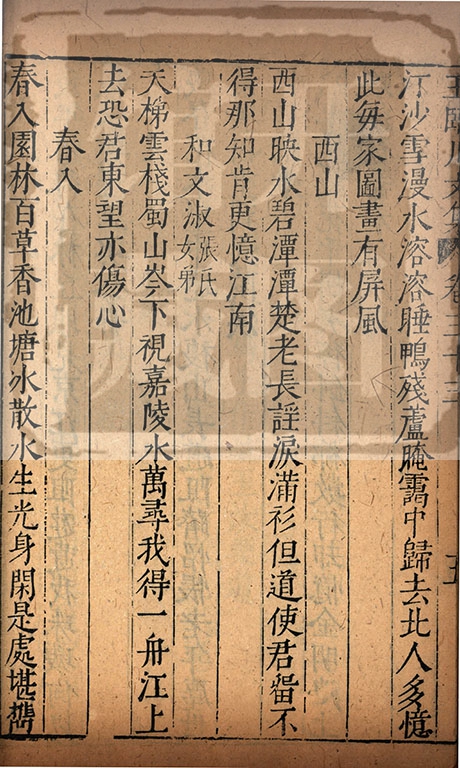 王臨川文集 卷三十三 五
汀沙雪漫水溶溶睡鴨殘蘆晻靄中歸去北人多憶
此每家圖畫有屏風
西山
西山映水碧潭潭楚老長謡淚滿衫但道使君畱不
得那知肯更憶江南
和文淑張氏女弟
天梯雲棧蜀山岑下視嘉陵水萬尋我得一舟江上
去恐君東望亦傷心
春入
春入園林百草香池塘冰散水生光身閑是處堪攜